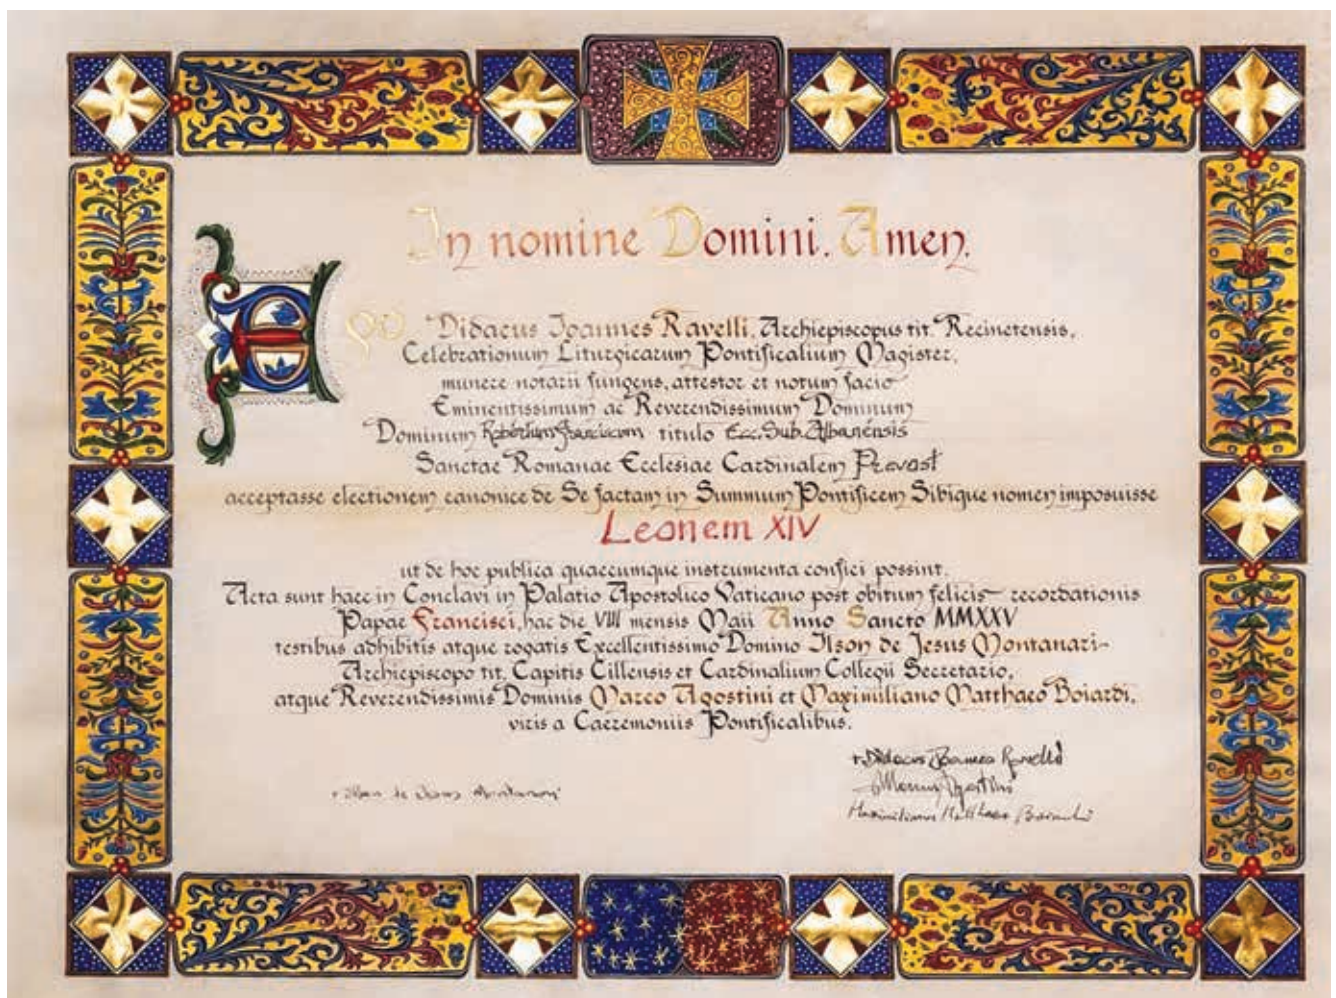 In nomine Domini. Amen.
Ego Didacus Joannes Ravelli, Archiepiscopus tit. Recinetensis,
Celebrationum Liturgicarum Pontificalium Magister,
munere notarii fungens, attestor et notum facio
Eminentissimum ac Reverendissimum Dominum
Dominum Robertum Franciscum titulo Ecc. Sub. Albanensis
Sanctae Romanae Ecclesiae Cardinalem Prevost
acceptasse electionem canonice de Se factam in Summum Pontificem Sibique nomen imposuisse
Leonem XIV
ut de hoc publica quaecumque instrumenta confici possint.
Acta sunt haec in Conclavi in Palatio Apostolico Vaticano post obitum felicis recordationis
Papae Francisci, hac die VIII mensis Maii Anno Sancto MMXXV
testibus adhibitis atque rogatis Excellentissimo Domino Ilson de Jesus Montanari
Archiepiscopo tit. Capitis Cillensis et Cardinalium Collegii Secretario,
atque Reverendissimis Dominis Marco Agostini et Maximiliano Matthaeo Boiardi,
viris a Caeremoniis Pontificalibus.
+ Didacus Joannes Ravelli
+ Ilson de Jesus Montanari
Marcus Agostini
Maximilianus Matthaeus Boiardi